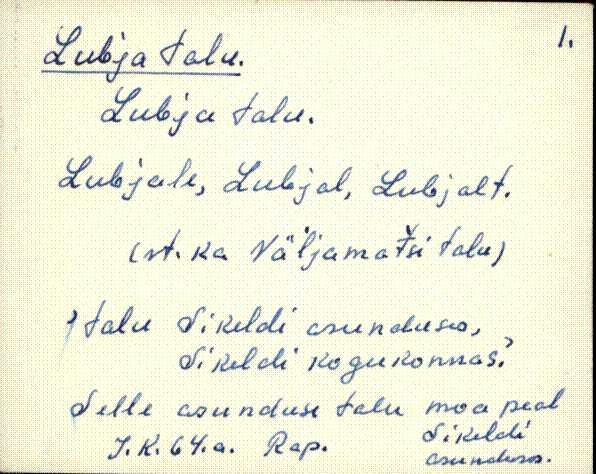 1.
Lubja talu.
Lubja talu.
Lubjale, Lubjal, Lubjalt.
(vt. ka Väljamatsi talu)
'talu Sikeldi asunduses,
Sikeldi kogukonnas.'
Selle asunduse talu moa peal
J.K. 64.a. Rap. Sikeldi
asunduses.